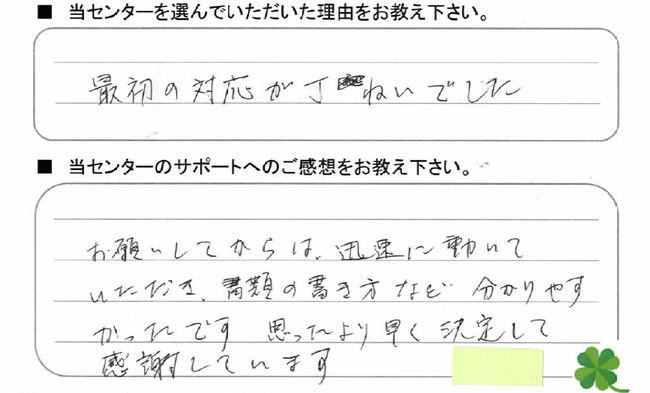 ■ 当センターを選んでいただいた理由をお教え下さい。
最初の対応が丁ねいでした
■ 当センターのサポートへのご感想をお教え下さい。
お願いしてからは、迅速に動いて
いただき、書類の書き方など 分かりやす
かったです 思ったより早く決定して
感謝しています